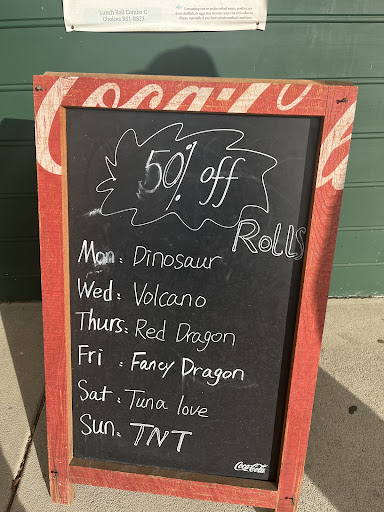 Lunch Roll Combo C
Coca-Cola
50% off
Rolls
Mon: Dinosaur
Wed: Volcano
Thurs: Red Dragon
Fri: Fancy Dragon
Sat: Tuna love
Sun: TNT
Coca-Cola